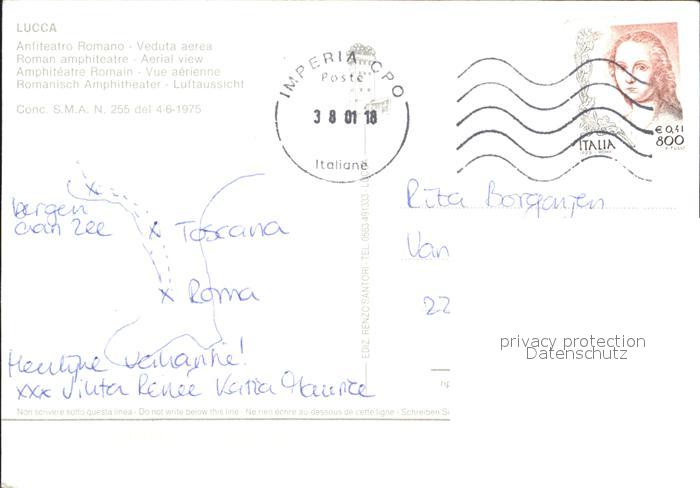 LUCCA
Anfiteatro Romano - Veduta aerea
Roman amphiteatre - Aerial view
Amphitéatre Romain - Vue aérienne
Romanisch Amphitheater - Luftaussicht
Conc. S.M.A. N. 255 del 4-6-1975
IMPERIA CPO
Poste
3 8 01 18
Italiane
€ 0,41
800
ITALIA
bergen
aan Zee
x Toscana
x Roma
Heerlijke vakantie!
xxx Renée Katia Maurice
EDIZ. RENZO SANTORI TEL. 0583-491333
Rita
Van
22
privacy protection
Datenschutz
Non scrivere sotto questa linea - Do not write below this line - Ne rien écrire au-dessous de cette ligne - Schreiben